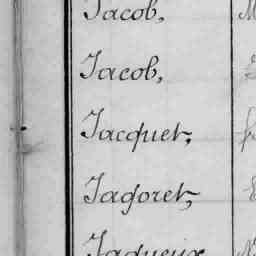 Jacob,
Jacob,
Jacquet,
Jagoret,
Jagueux